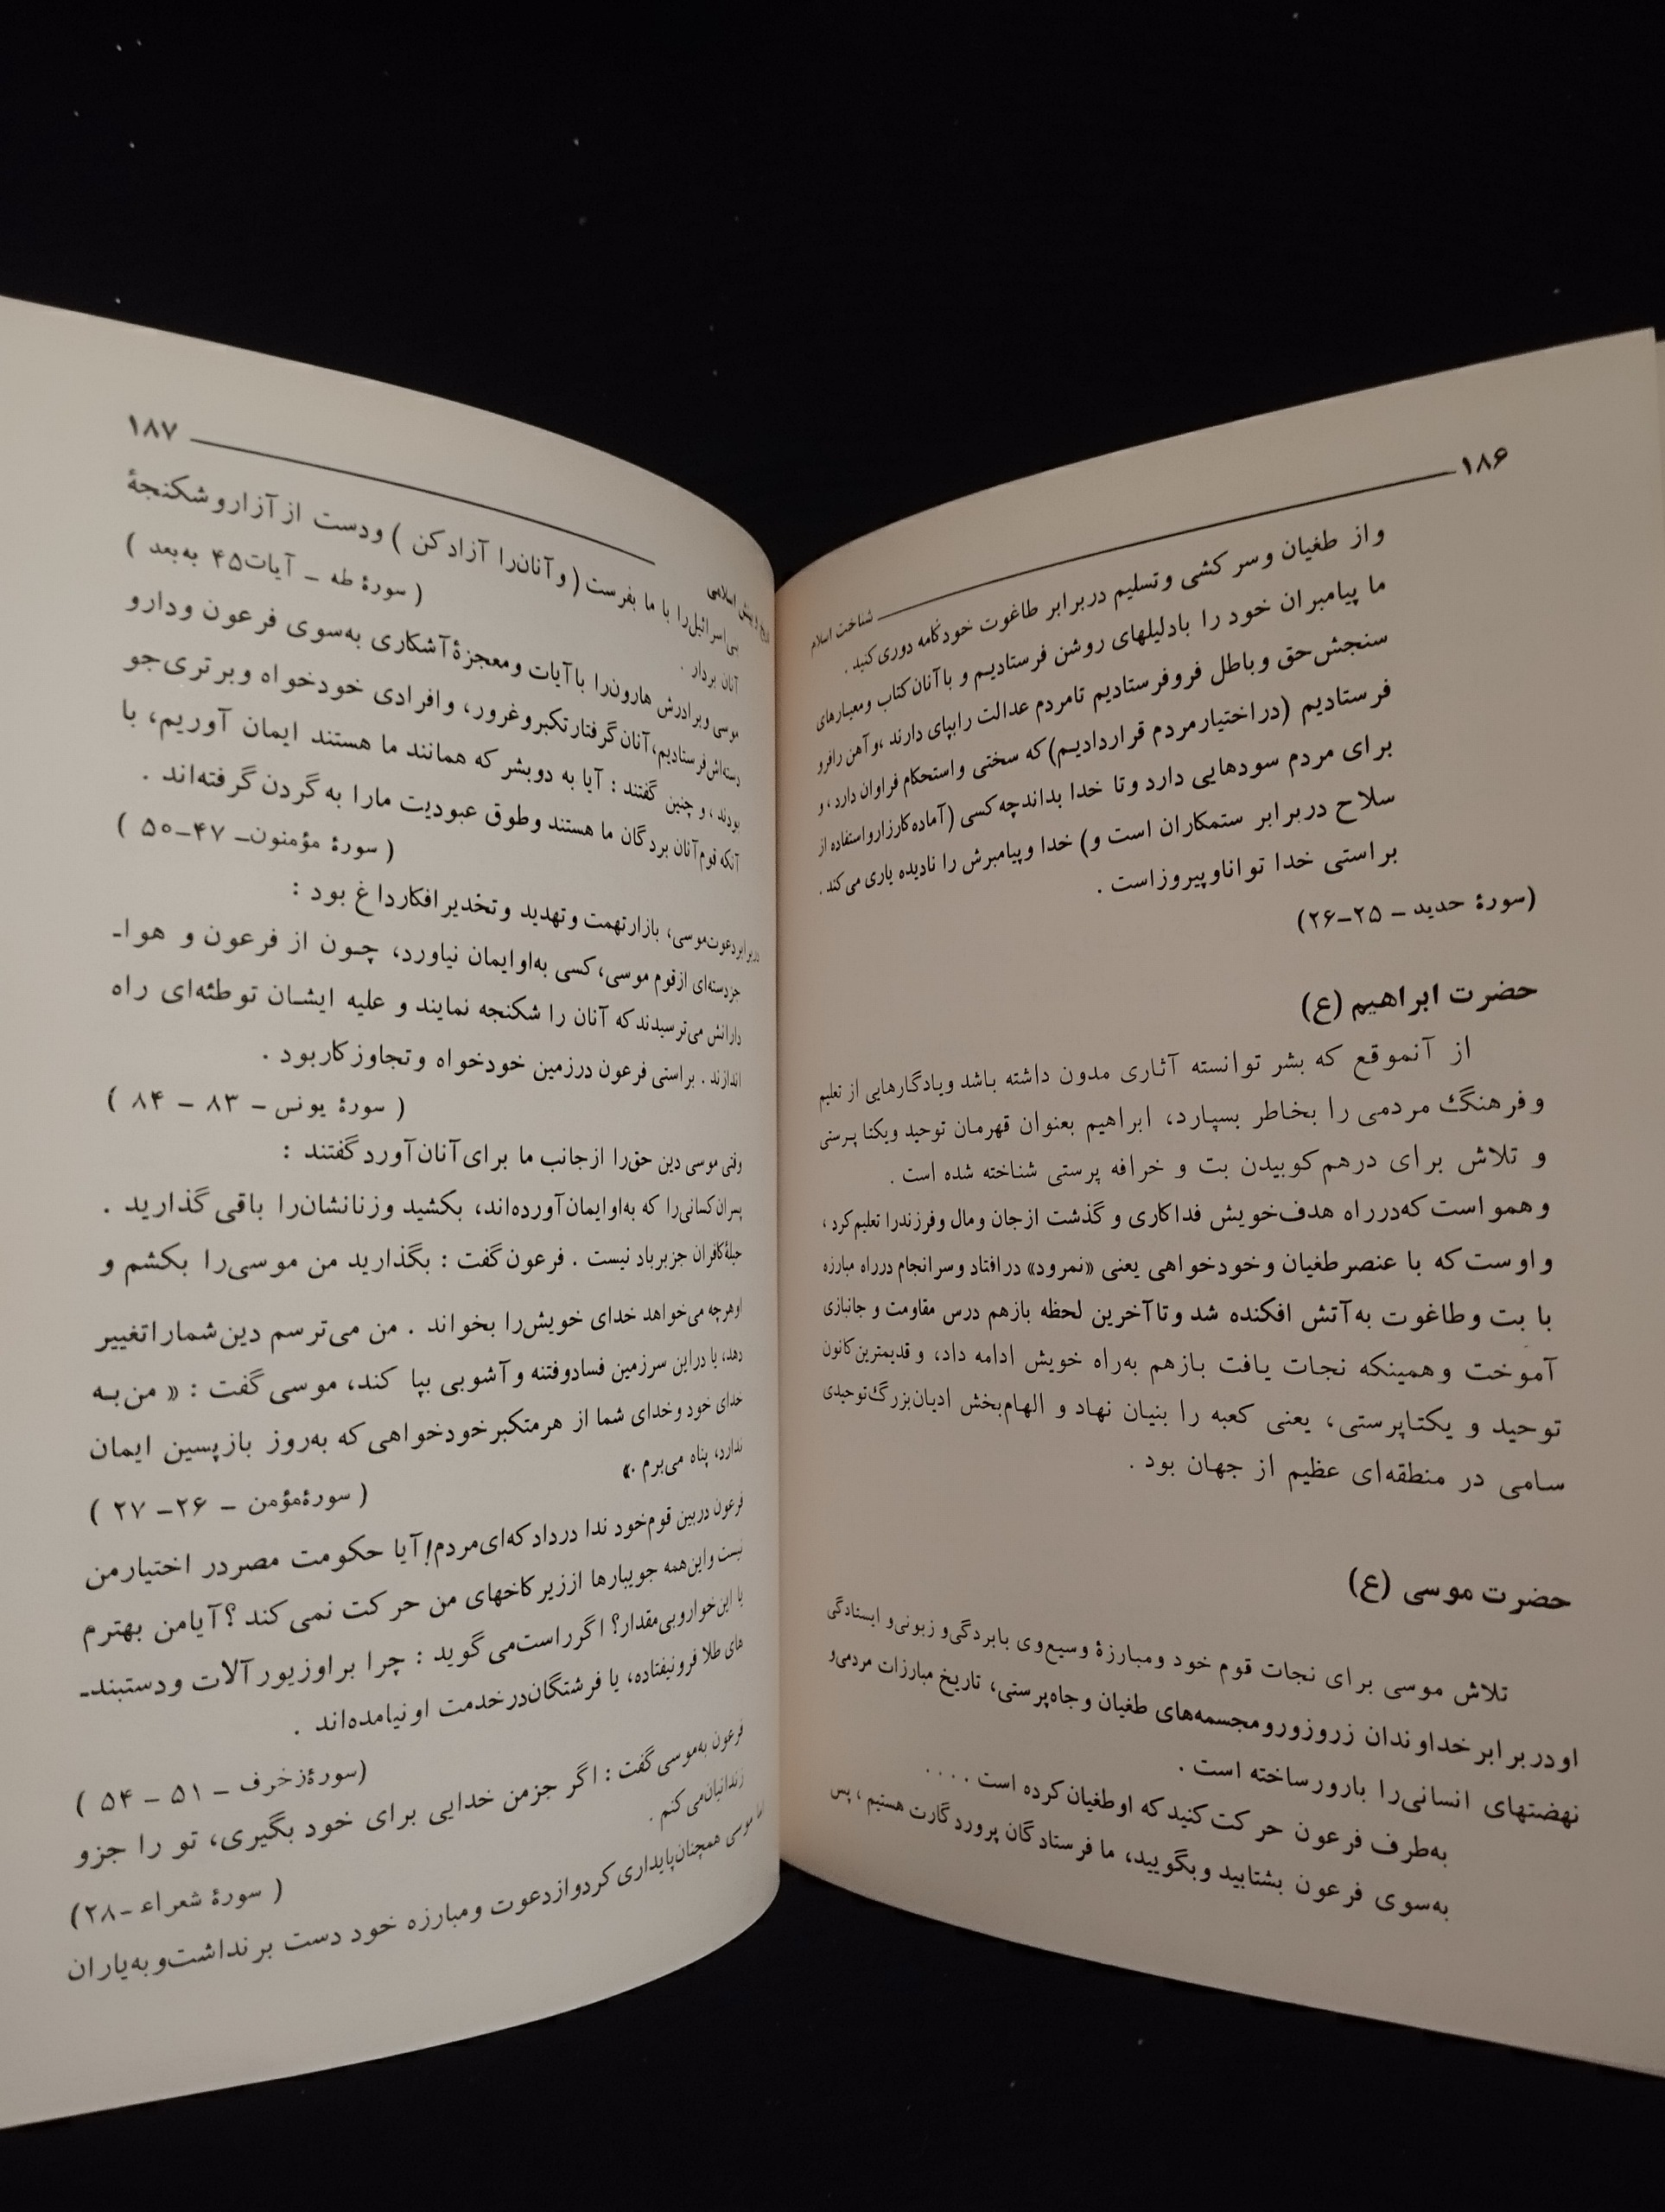 ۱۸۶ شناخت اسلام
و از طغیان و سرکشی و تسلیم در برابر طاغوت خودکامه دوری کنید.
ما پیامبران خود را بادلیلهای روشن فرستادیم و باآنان کتاب ومعیارهای
سنجش حق وباطل فروفرستادیم تامردم عدالت رابپای دارند، وآهن رافرو
فرستادیم (دراختیارمردم قراردادیم) که سختی واستحکام فراوان دارد، و
برای مردم سودهایی دارد وتا خدا بداندچه کسی (آماده کارزارواستفاده از
سلاح دربرابر ستمکاران است و) خدا وپیامبرش را نادیده یاری می‌کند.
براستی خدا تواناوپیروزاست.
(سورهٔ حدید – ۲۵–۲۶)
حضرت ابراهیم (ع)
از آنموقع که بشر توانسته آثاری مدون داشته باشد ویادگارهایی از تعلیم
و فرهنگ مردمی را بخاطر بسپارد، ابراهیم بعنوان قهرمان توحید ویکتا پرستی
و تلاش برای درهم کوبیدن بت و خرافه پرستی شناخته شده است.
و همو است که درراه هدف خویش فداکاری و گذشت ازجان ومال وفرزندرا تعلیم کرد،
و اوست که با عنصر طغیان و خودخواهی یعنی «نمرود» درافتاد وسرانجام درراه مبارزه
با بت و طاغوت به‌آتش افکنده شد و تاآخرین لحظه بازهم درس مقاومت و جانبازی
آموخت و همینکه نجات یافت بازهم به‌راه خویش ادامه داد، و قدیمترین کانون
توحید و یکتاپرستی، یعنی کعبه را بنیان نهاد و الهام‌بخش ادیان بزرگ توحیدی
سامی در منطقه‌ای عظیم از جهان بود.
حضرت موسی (ع)
تلاش موسی برای نجات قوم خود ومبارزهٔ وسیع وی بابردگی و زبونی و ایستادگی
او در برابر خداوندان زروزورومجسمه‌های طغیان وجاه‌پرستی، تاریخ مبارزات مردمی و
نهضتهای انسانی را بارورساخته است.
به‌طرف فرعون حرکت کنید که اوطغیان کرده است . . . .
به‌سوی فرعون بشتابید وبگویید، ما فرستادگان پروردگارت هستیم، پس
بینش اسلامی ۱۸۷
بنی‌اسرائیل را با ما بفرست (و آنان‌را آزاد کن) ودست از آزاروشکنجهٔ
آنان بردار.
(سورهٔ طه – آیات ۴۵ به‌بعد)
موسی وبرادرش هارون‌را باآیات ومعجزهٔ آشکاری به‌سوی فرعون ودارو
دسته‌اش فرستادیم، آنان گرفتارتکبروغرور، وافرادی خودخواه وبرتری جو
بودند، و چنین گفتند : آیا به دوبشر که همانند ما هستند ایمان آوریم، با
آنکه قوم آنان بردگان ما هستند وطوق عبودیت مارا به گردن گرفته‌اند.
(سورهٔ مؤمنون– ۴۷–۵۰)
دربرابر دعوت موسی، بازارتهمت وتهدید وتخدیر افکارداغ بود :
جزدسته‌ای ازقوم موسی، کسی به‌اوایمان نیاورد، چون از فرعون و هوا-
دارانش می‌ترسیدندکه آنان را شکنجه نمایند و علیه ایشان توطئه‌ای راه
اندازند. براستی فرعون درزمین خودخواه وتجاوزکاربود.
(سورهٔ یونس – ۸۳ – ۸۴)
وقتی موسی دین حق‌را ازجانب ما برای آنان آوردگفتند :
پسران کسانی‌را که به‌اوایمان آورده‌اند، بکشید وزنانشان‌را باقی گذارید.
حیلهٔ کافران جزبرباد نیست. فرعون گفت : بگذارید من موسی‌را بکشم و
اوهرچه می‌خواهد خدای خویش‌را بخواند. من می‌ترسم دین شماراتغییر
دهد، یا دراین سرزمین فسادوفتنه وآشوبی بپا کند، موسی گفت : « من به
خدای خود وخدای شما از هرمتکبرخودخواهی که به‌روز بازپسین ایمان
ندارد، پناه می‌برم.»
(سورهٔ مؤمن – ۲۶– ۲۷)
فرعون دربین قوم خود ندا درداد که‌ای مردم! آیا حکومت مصردر اختیارمن
نیست واین همه جویبارها اززیر کاخهای من حرکت نمی‌کند ؟ آیامن بهترم
یا این خواروبی‌مقدار؟ اگرراست می‌گوید : چرا براوزیورآلات ودستبند-
های طلا فرونیفتاده، یا فرشتگان درخدمت اونیامده‌اند.
(سورهٔ زخرف – ۵۱ – ۵۴)
فرعون به‌موسی گفت : اگر جزمن خدایی برای خود بگیری، تو را جزو
زندانیان می‌کنم.
(سورهٔ شعراء –۲۸)
اما موسی همچنان پایداری کردوازدعوت ومبارزه خود دست برنداشت وبه‌یاران